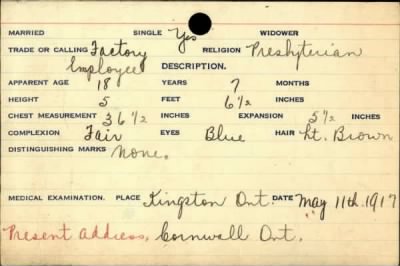 MARRIED SINGLE Yes WIDOWER
TRADE OR CALLING Factory RELIGION Presbyterian
Employee DESCRIPTION.
APPARENT AGE 18 YEARS 7 MONTHS
HEIGHT 5 FEET 6 1/2 INCHES
CHEST MEASUREMENT 36 1/2 INCHES EXPANSION 5 1/2 INCHES
COMPLEXION Fair EYES Blue HAIR Lt. Brown
DISTINGUISHING MARKS None.
MEDICAL EXAMINATION. PLACE Kingston Ont. DATE May 11th. 1917
Present address, Cornwall Ont.